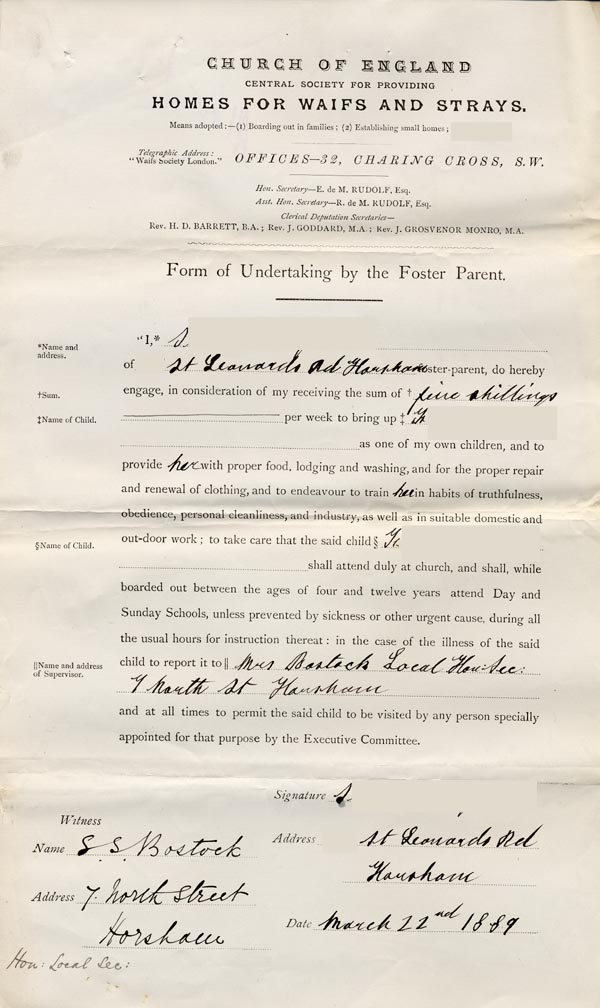 CHURCH OF ENGLAND
CENTRAL SOCIETY FOR PROVIDING
HOMES FOR WAIFS AND STRAYS.
Means adopted:—(1) Boarding out in families; (2) Establishing small homes;
Telegraphic Address:
"Waifs Society London." OFFICES—32, CHARING CROSS, S.W.
Hon. Secretary—E. de M. RUDOLF, Esq.
Asst. Hon. Secretary—R. de M. RUDOLF, Esq.
Clerical Deputation Secretaries—
Rev. H. D. BARRETT, B.A.; Rev. J. GODDARD, M.A.; Rev. J. GROSVENOR MONRO, M.A.
Form of Undertaking by the Foster Parent.
*Name and
address.
"I,* S.
of St Leonards Rd Horsham oster-parent, do hereby
†Sum. engage, in consideration of my receiving the sum of † five shillings
‡Name of Child. per week to bring up ‡
as one of my own children, and to
provide her with proper food, lodging and washing, and for the proper repair
and renewal of clothing, and to endeavour to train her in habits of truthfulness,
obedience, personal cleanliness, and industry, as well as in suitable domestic and
§Name of Child. out-door work; to take care that the said child §
shall attend duly at church, and shall, while
boarded out between the ages of four and twelve years attend Day and
Sunday Schools, unless prevented by sickness or other urgent cause, during all
the usual hours for instruction thereat: in the case of the illness of the said
||Name and address
of Supervisor.
child to report it to || Mrs Bostock Local Hon: Sec:
7 North St Horsham
and at all times to permit the said child to be visited by any person specially
appointed for that purpose by the Executive Committee.
Signature S.
Witness
Name S. S. Bostock
Address St Leonards Rd
Horsham
Address 7. North Street
Horsham
Date March 22nd 1889
Hon: Local Sec: